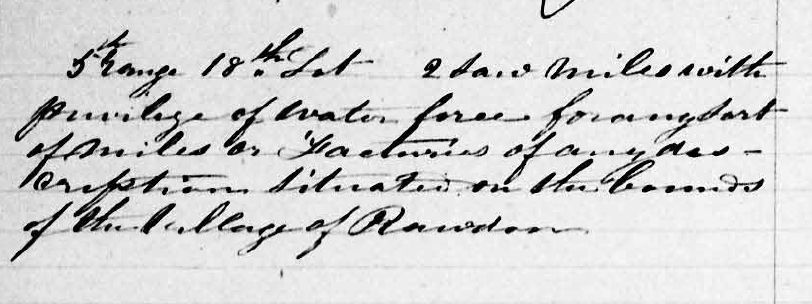 5th Range 18th Lot 2 Saw Miles with
privilege of water force for any sort
of miles or Facturies of any des-
cription situated on the bounds
of the Village of Rawdon